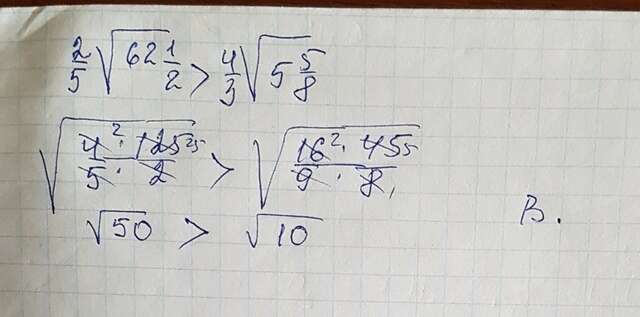 2/5 √(62 1/2) > 4/3 √(5 5/8)
√((4² · 125²⁵)/(5 · 2)) > √((16² · 45⁵)/(9 · 8₁))
√50 > √10
В.